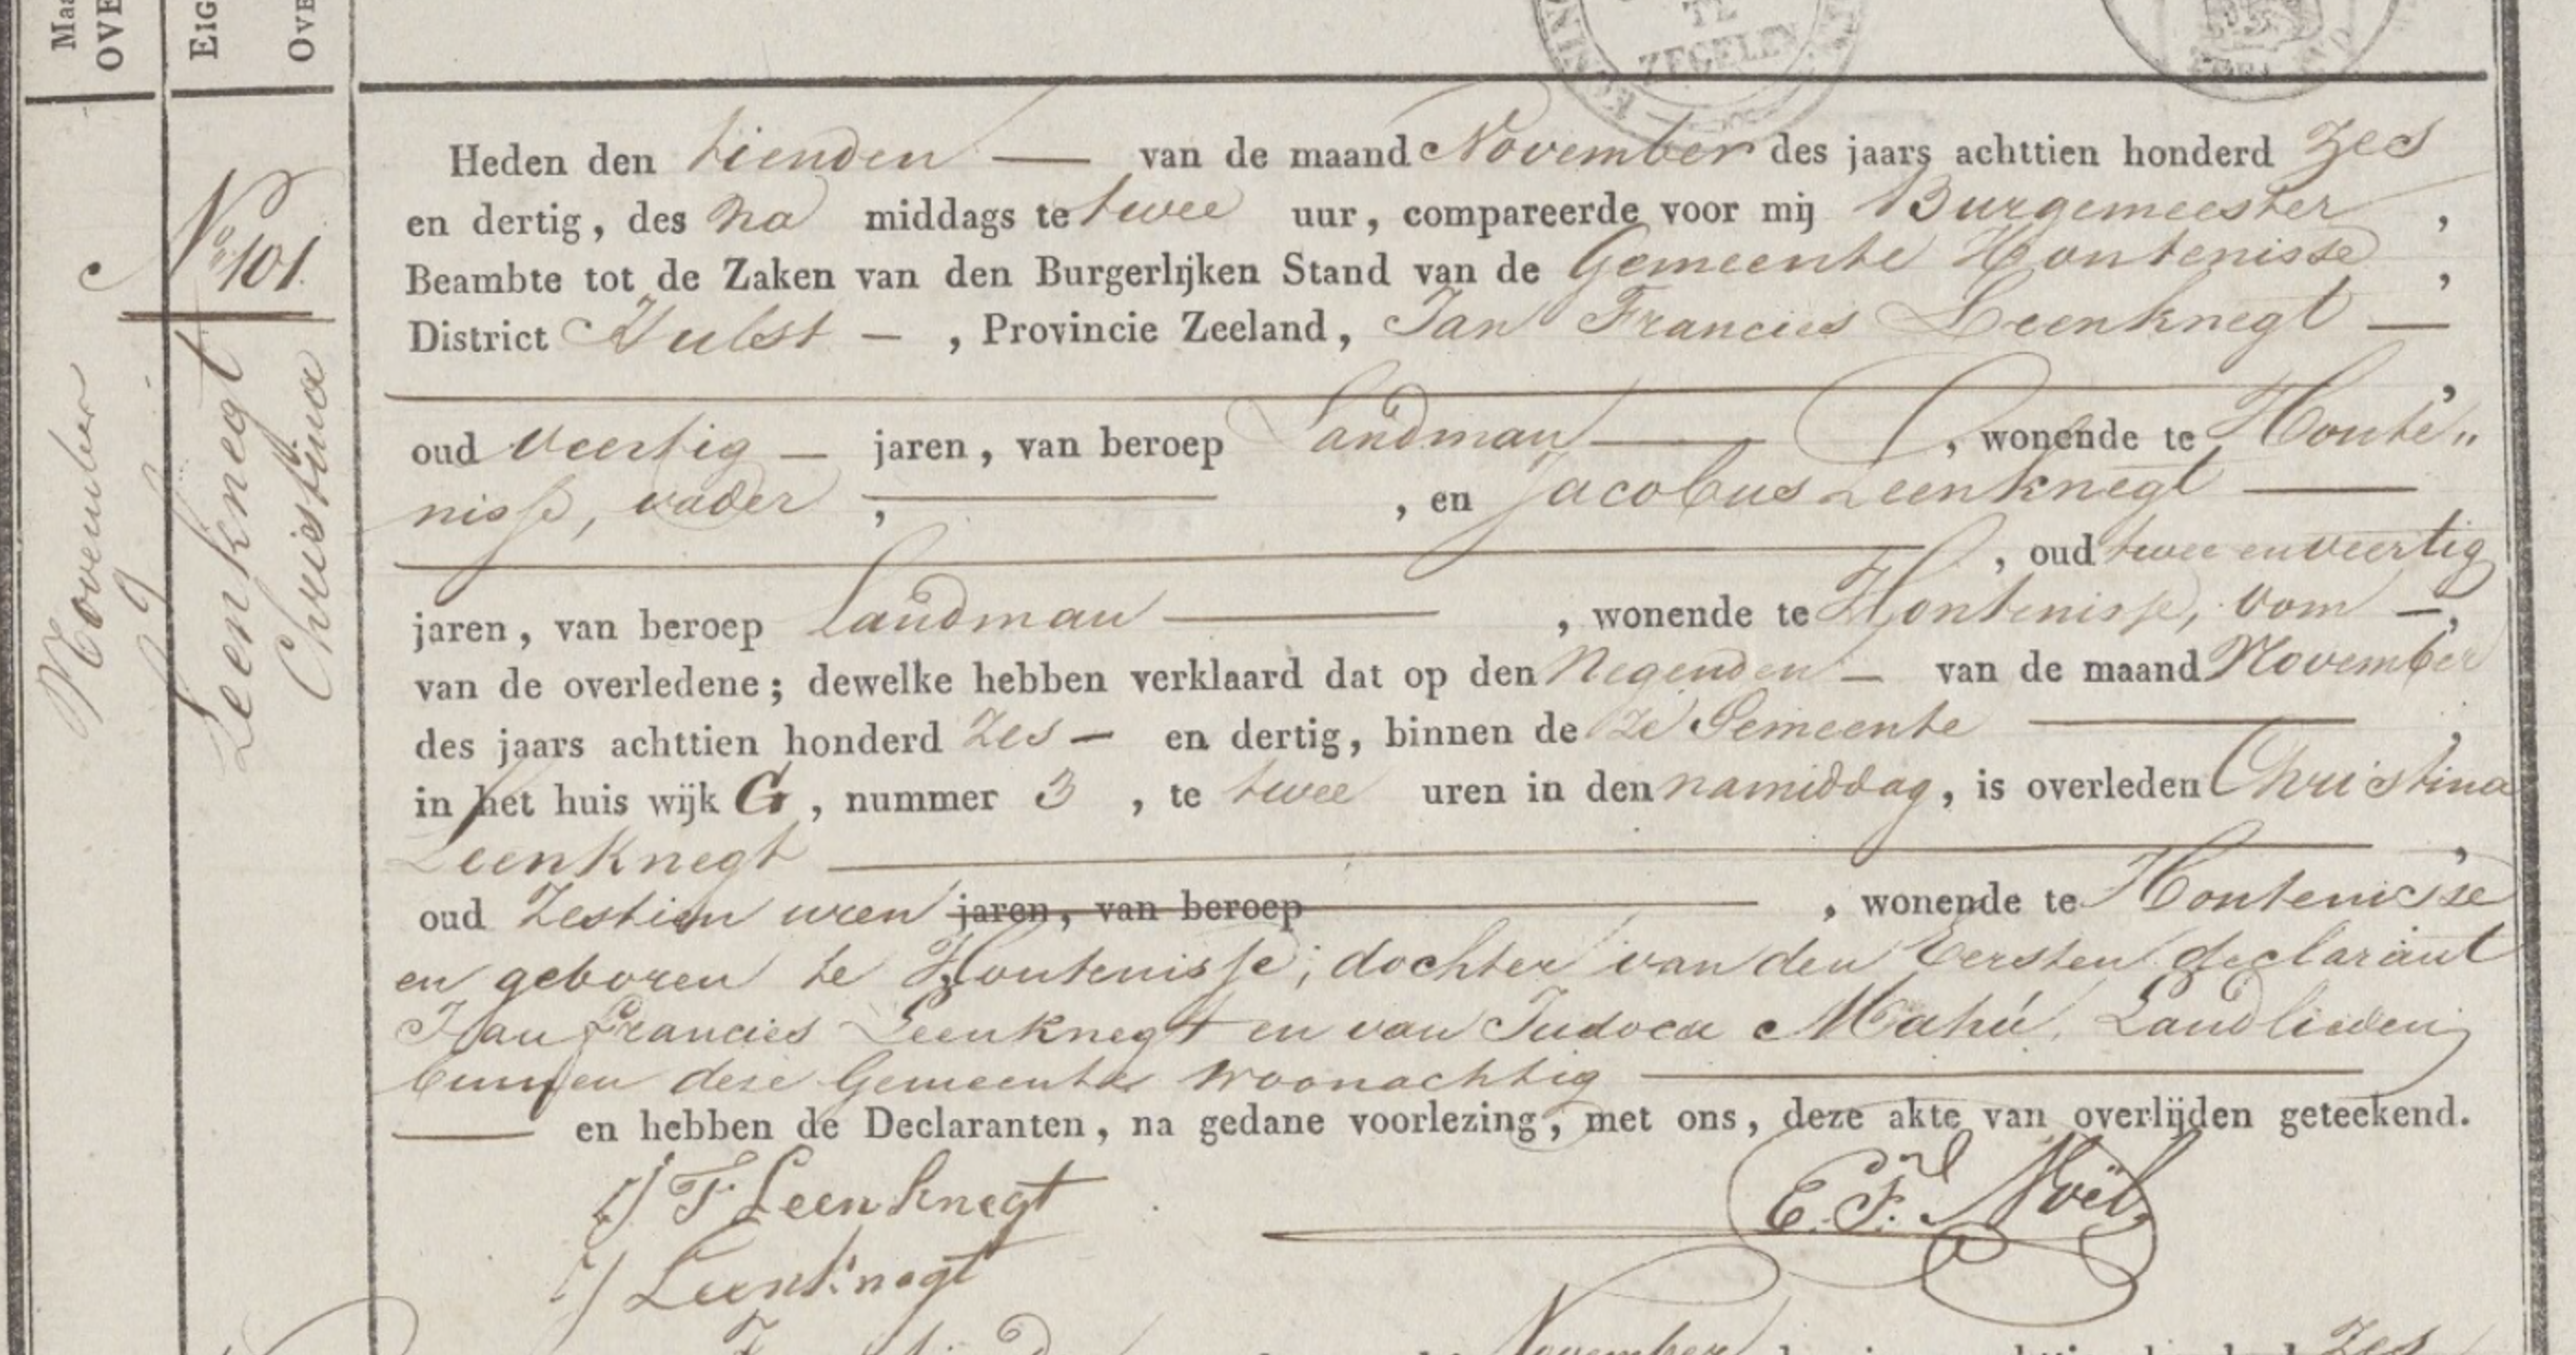 Maa
OVE
EIG
OVE
TE
ZEGELEN
November
9
No 101
Leenknegt
Christina
Heden den tienden — van de maand November des jaars achttien honderd zes
en dertig, des na middags te twee uur, compareerde voor mij Burgemeester,
Beambte tot de Zaken van den Burgerlijken Stand van de Gemeente Hontenisse,
District Hulst —, Provincie Zeeland, Jan Francies Leenknegt —
,
oud veertig — jaren, van beroep Landman —, wonende te Honte„
nisse, vader —, en Jacobus Leenknegt —
, oud twee en veertig
jaren, van beroep landman —, wonende te Hontenisse, oom —,
van de overledene; dewelke hebben verklaard dat op den Negenden — van de maand November
des jaars achttien honderd zes — en dertig, binnen de ze Gemeente —,
in het huis wijk G, nummer 3, te twee uren in den namiddag, is overleden Christina
Leenknegt —,
oud Zestien uren jaren, van beroep —, wonende te Hontenisse
en geboren te Hontenisse; dochter van den Eersten declarant
Jan Francies Leenknegt en van Judoca Mahú, Landlieden
binnen deze Gemeente woonachtig —
— en hebben de Declaranten, na gedane voorlezing, met ons, deze akte van overlijden geteekend.
J F Leenknegt
E. F. Noël
J Leenknegt
November
zes